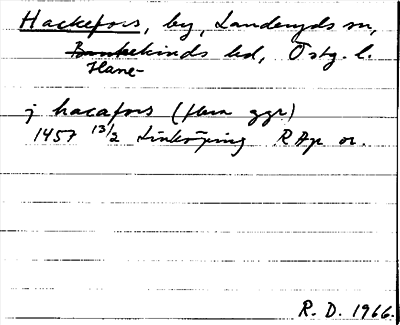 Hackefors, by, Landeryds sn,
Bankekinds hd, Östg. l.
Hane-
j hacafors (flera ggr)
1457 13/2 Linköping RAp or.
R. D. 1966.